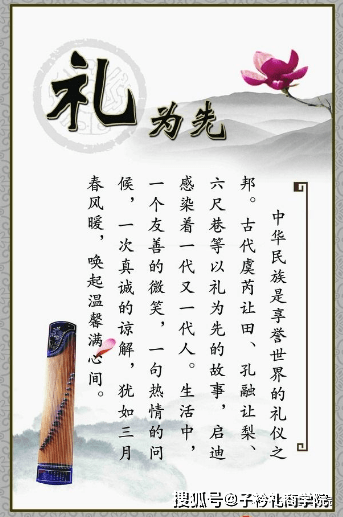 礼为先
中华民族是享誉世界的礼仪之
邦。古代虞芮让田、孔融让梨、
六尺巷等以礼为先的故事，启迪
感染着一代又一代人。生活中，
一个友善的微笑，一句热情的问
候，一次真诚的谅解，犹如三月
春风暖，唤起温馨满心间。
搜狐号@子衿礼商学院